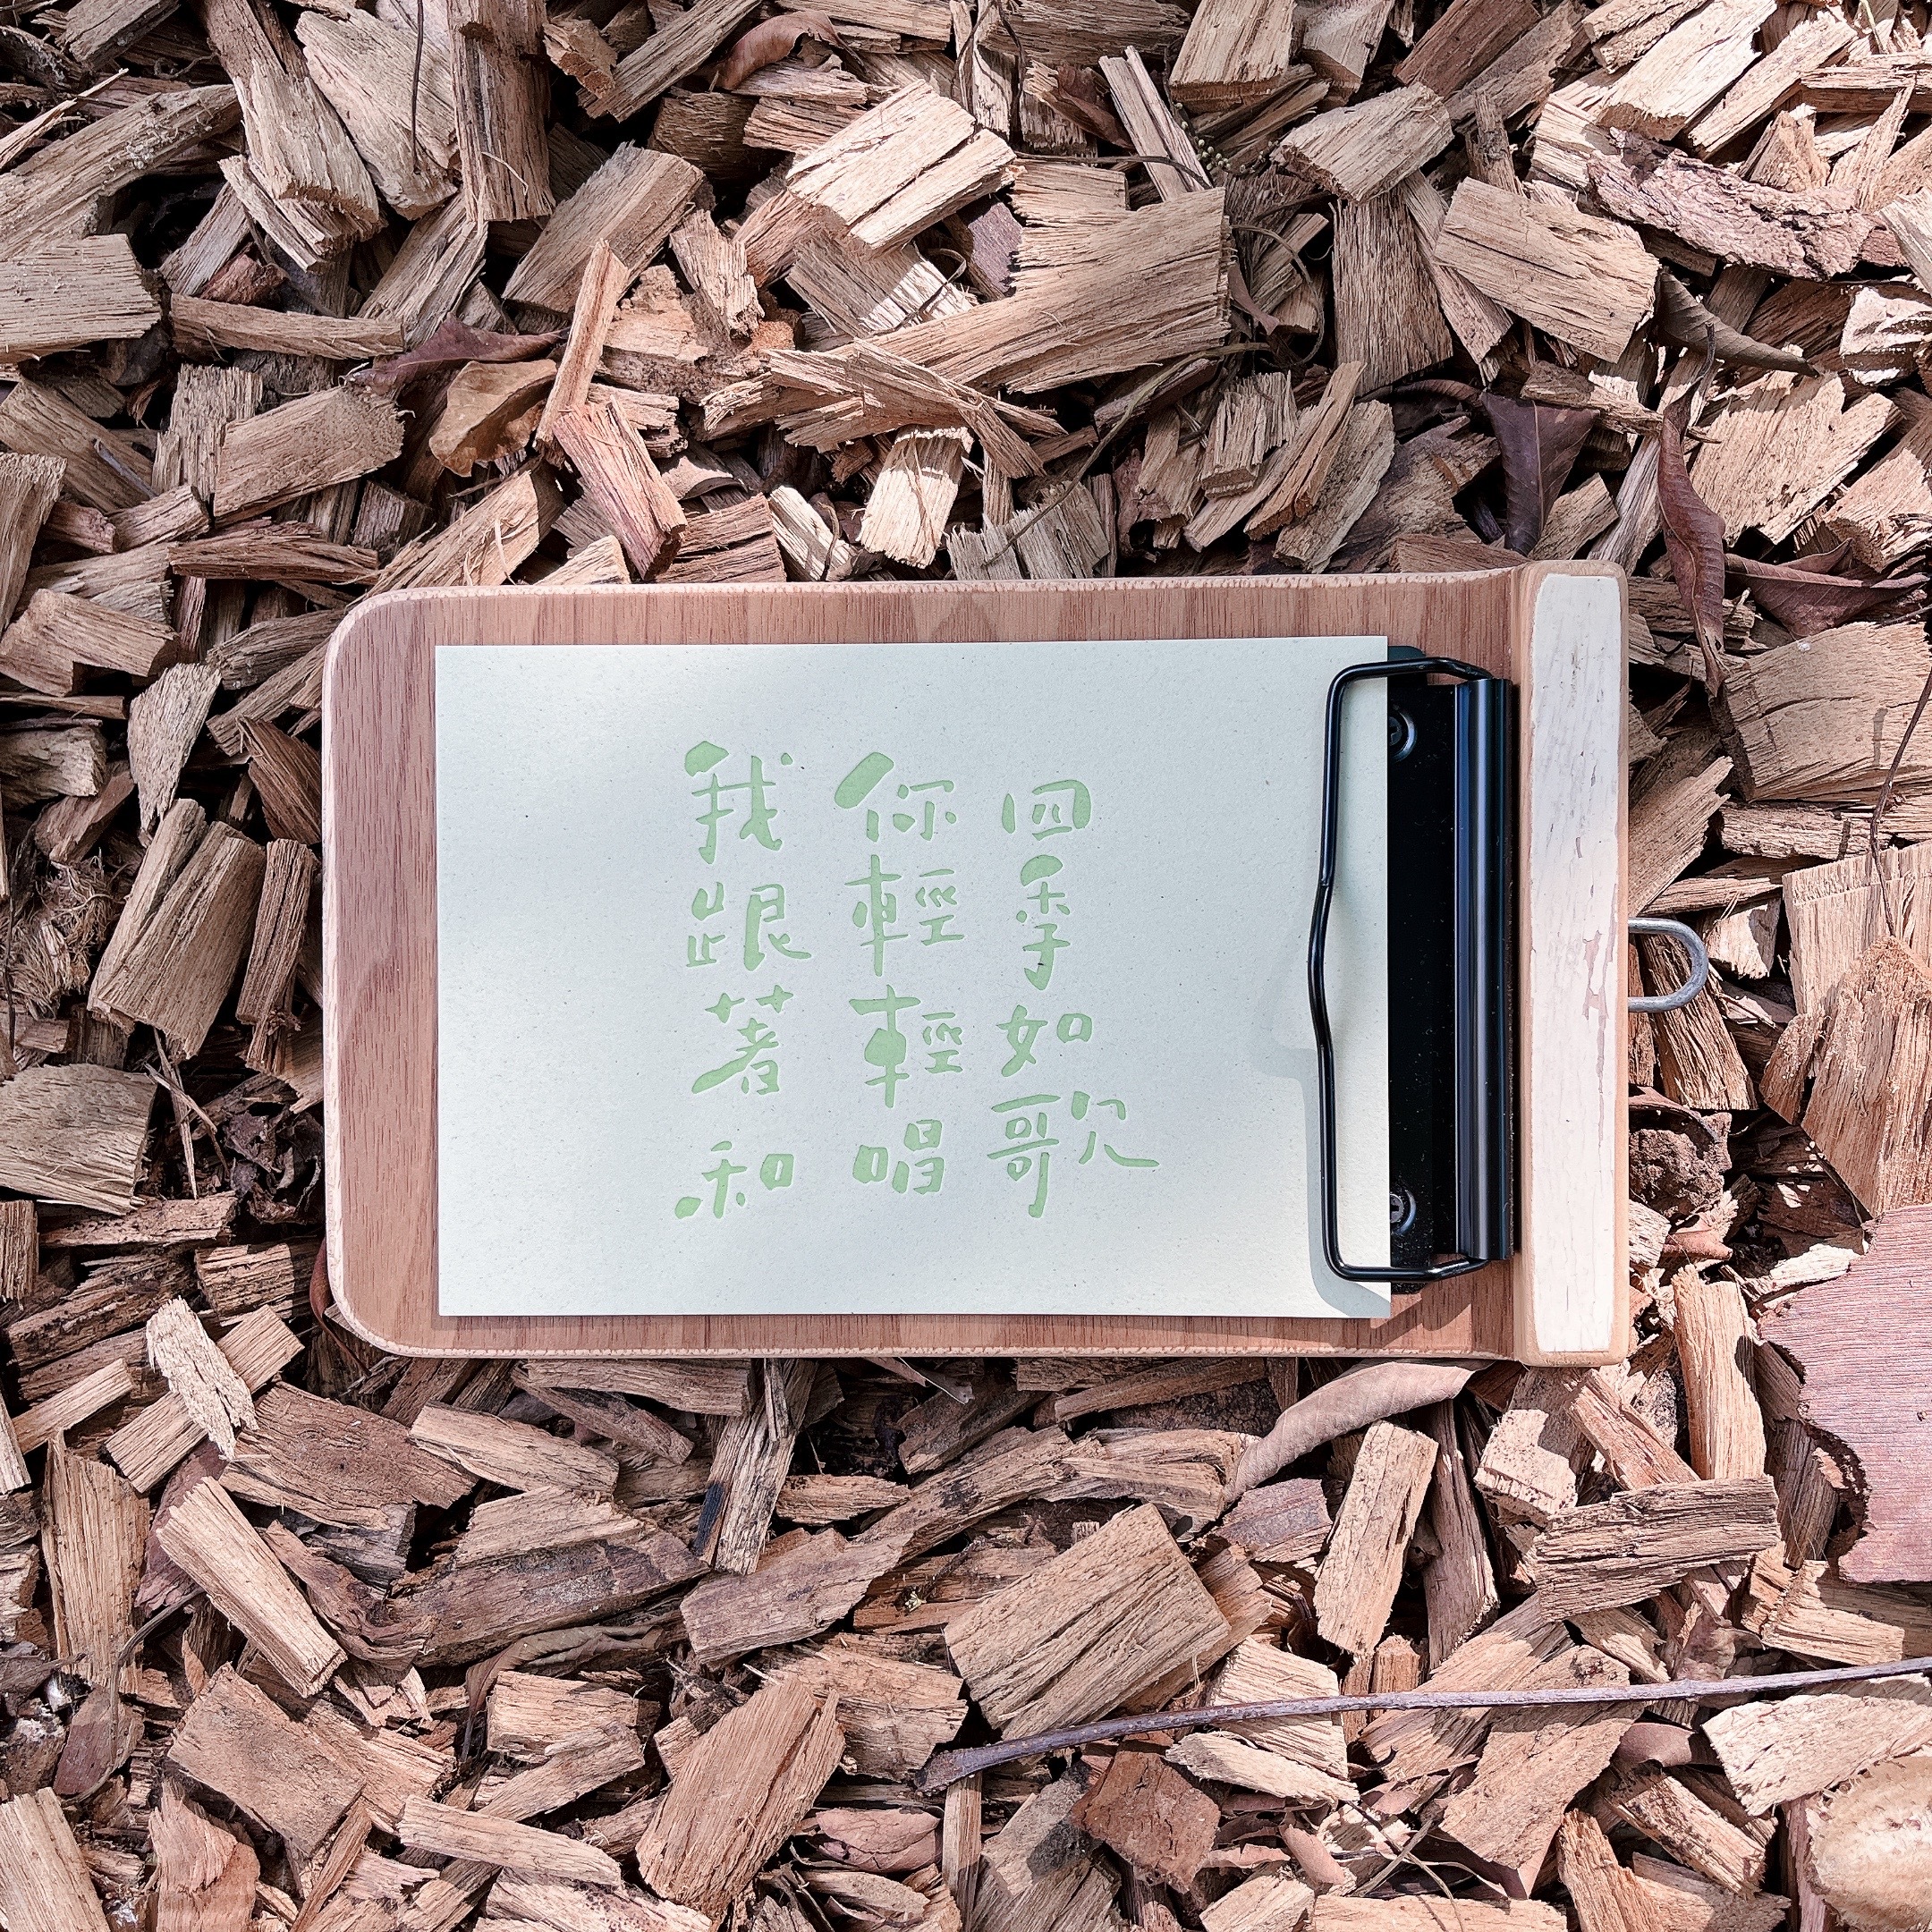 四季如歌
你輕輕唱
我跟著和